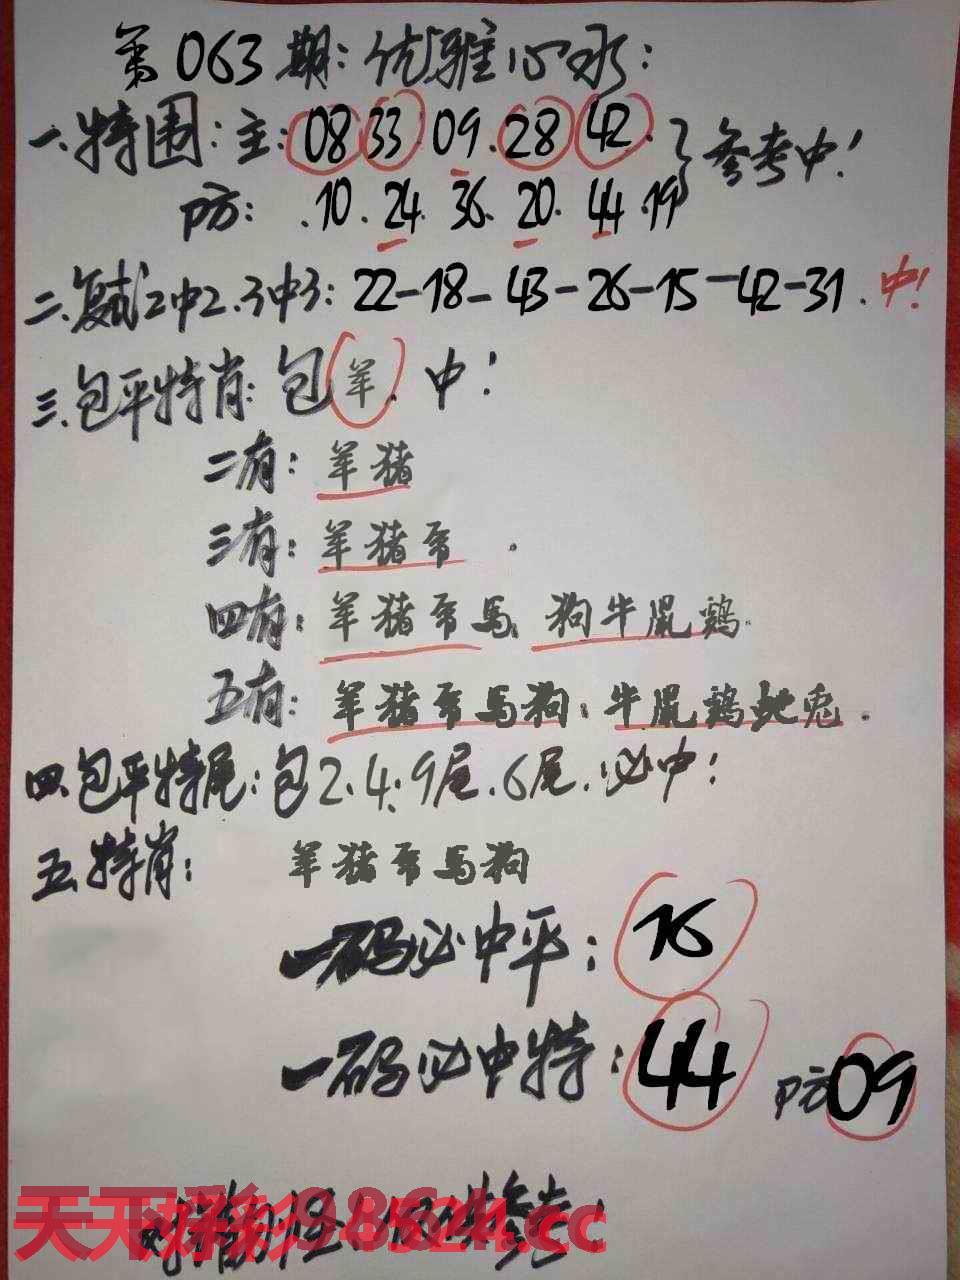 第063期:优雅心水:
一.特围:主:08 33 09.28 42.}参考中!
防: .10.24.36.20.44.19
二.复试2中2.3中3:22-18-43-26-15-42-31.中!
三.包平特肖:包羊.中!
二有:羊猪
三有:羊猪帝.
四有:羊猪帝马.狗牛鼠鸡.
五有:羊猪帝马狗.牛鼠鸡蛇兔.
四.包平特尾:包2.4.9尾.6尾.必中!
五.特肖: 羊猪帝马狗
一码必中平:16
一码必中特:44 防09
天下彩 9864.cc